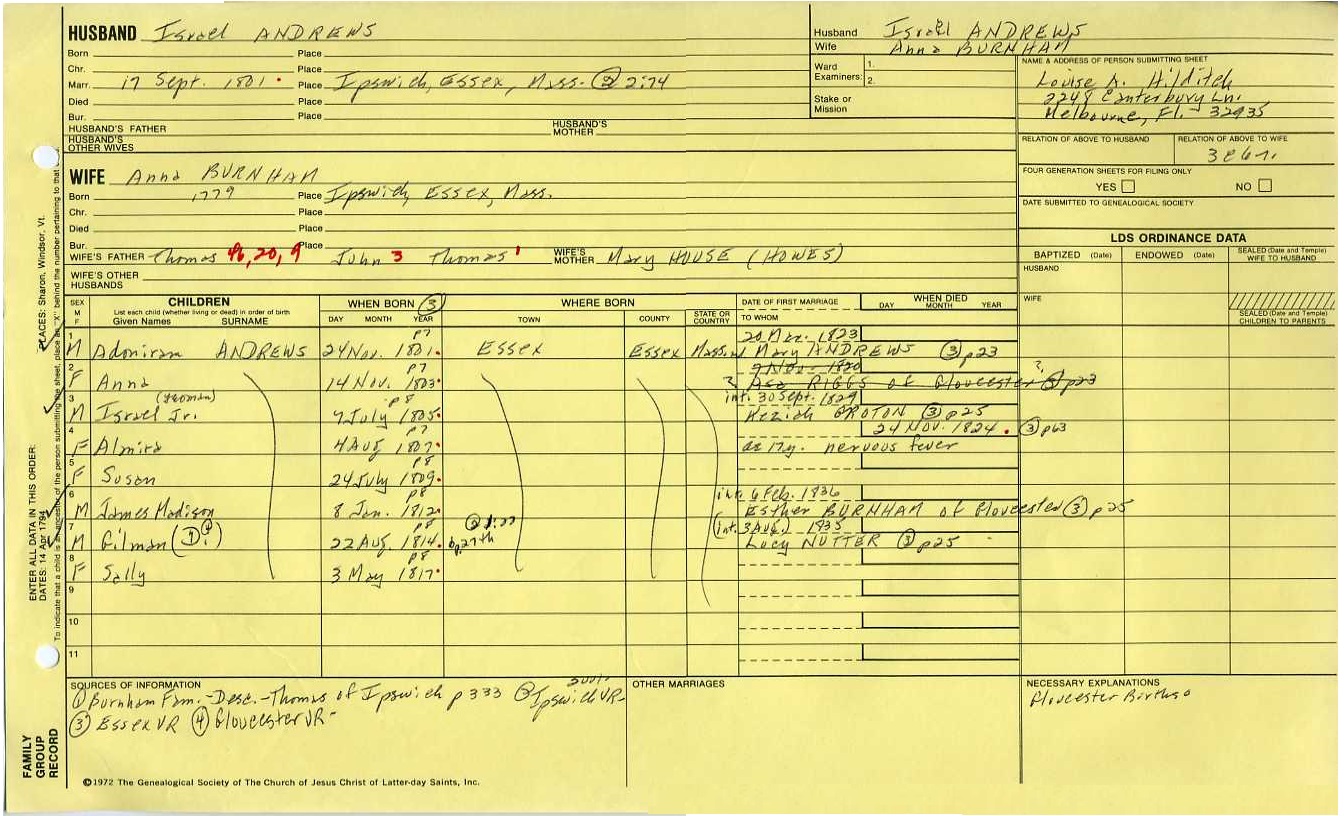 HUSBAND Israel ANDREWS
Born Place
Chr. Place
Marr. 17 Sept. 1801 Place Ipswich, Essex, Mass. @ 2:74
Died Place
Bur. Place
HUSBAND'S FATHER HUSBAND'S MOTHER
HUSBAND'S OTHER WIVES
Husband Israel ANDREWS
Wife Anna BURNHAM
Ward Examiners: 1.
2.
Stake or Mission
NAME & ADDRESS OF PERSON SUBMITTING SHEET
Louise A. Hilditch
2248 Canterbury Ln.
Melbourne, Fl. 32935
RELATION OF ABOVE TO HUSBAND RELATION OF ABOVE TO WIFE
FOUR GENERATION SHEETS FOR FILING ONLY
YES NO
DATE SUBMITTED TO GENEALOGICAL SOCIETY
WIFE Anna BURNHAM
Born 1779 Place Ipswich, Essex, Mass.
Chr. Place
Died Place
Bur. Place
WIFE'S FATHER Thomas 46, 20, 9 John 3 Thomas 1 WIFE'S MOTHER Mary HOUSE (HOWES)
WIFE'S OTHER HUSBANDS
LDS ORDINANCE DATA
BAPTIZED (Date) ENDOWED (Date) SEALED (Date and Temple) WIFE TO HUSBAND
HUSBAND
WIFE
SEALED (Date and Temple) CHILDREN TO PARENTS
SEX M F CHILDREN WHEN BORN (3) WHERE BORN DATE OF FIRST MARRIAGE WHEN DIED
List each child (whether living or dead) in order of birth
Given Names SURNAME DAY MONTH YEAR TOWN COUNTY STATE OR COUNTRY TO WHOM DAY MONTH YEAR
1 p7 1823
M Adoniram ANDREWS 24 Nov. 1801. Essex Essex Mass. Mary ANDREWS (3) p23
2 p7 9 Nov. 1820 ?
F Anna 14 Nov. 1803. ? Asa RIGGS of Gloucester (3) p23
3 p8 int. 30 Sept. 1829
M Israel Jr. 7 July 1805. Keziah GROTON (3) p25
4 p7 24 NOV. 1824. (3) p63
F Almira 4 Aug 1807. ae 17y. nervous fever
5 p8
F Susan 24 July 1809.
6 p8 int. 6 Feb. 1836
M James Madison 8 Jan. 1812. Esther BURNHAM of Gloucester (3) p25
7 p8 (int. 3 Aug.) 1835
M Gilman 22 Aug. 1814. bp. 27th Lucy NUTTER (3) p25
8 p8
F Sally 3 May 1817.
9
10
11
SOURCES OF INFORMATION
(1) Burnham Fam.-Desc.-Thomas of Ipswich p333 (2) Ipswich VR-
(3) Essex VR (4) Gloucester VR-
OTHER MARRIAGES
NECESSARY EXPLANATIONS
Gloucester Births
©1972 The Genealogical Society of The Church of Jesus Christ of Latter-day Saints, Inc.
FAMILY GROUP RECORD
ENTER ALL DATA IN THIS ORDER:
DATES: 14 Apr 1794 PLACES: Sharon, Windsor, Vt.